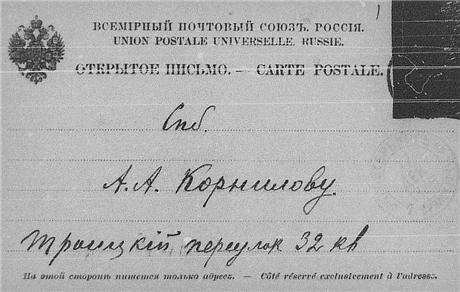 ВСЕМІРНЫЙ ПОЧТОВЫЙ СОЮЗЪ. РОССІЯ.
UNION POSTALE UNIVERSELLE. RUSSIE.
ОТКРЫТОЕ ПИСЬМО. — CARTE POSTALE.
Спб.
А. А. Корнилову.
Троицкій переулок 32 кв
На этой сторонѣ пишется только адресъ. — Côté réservé exclusivement à l'adresse.